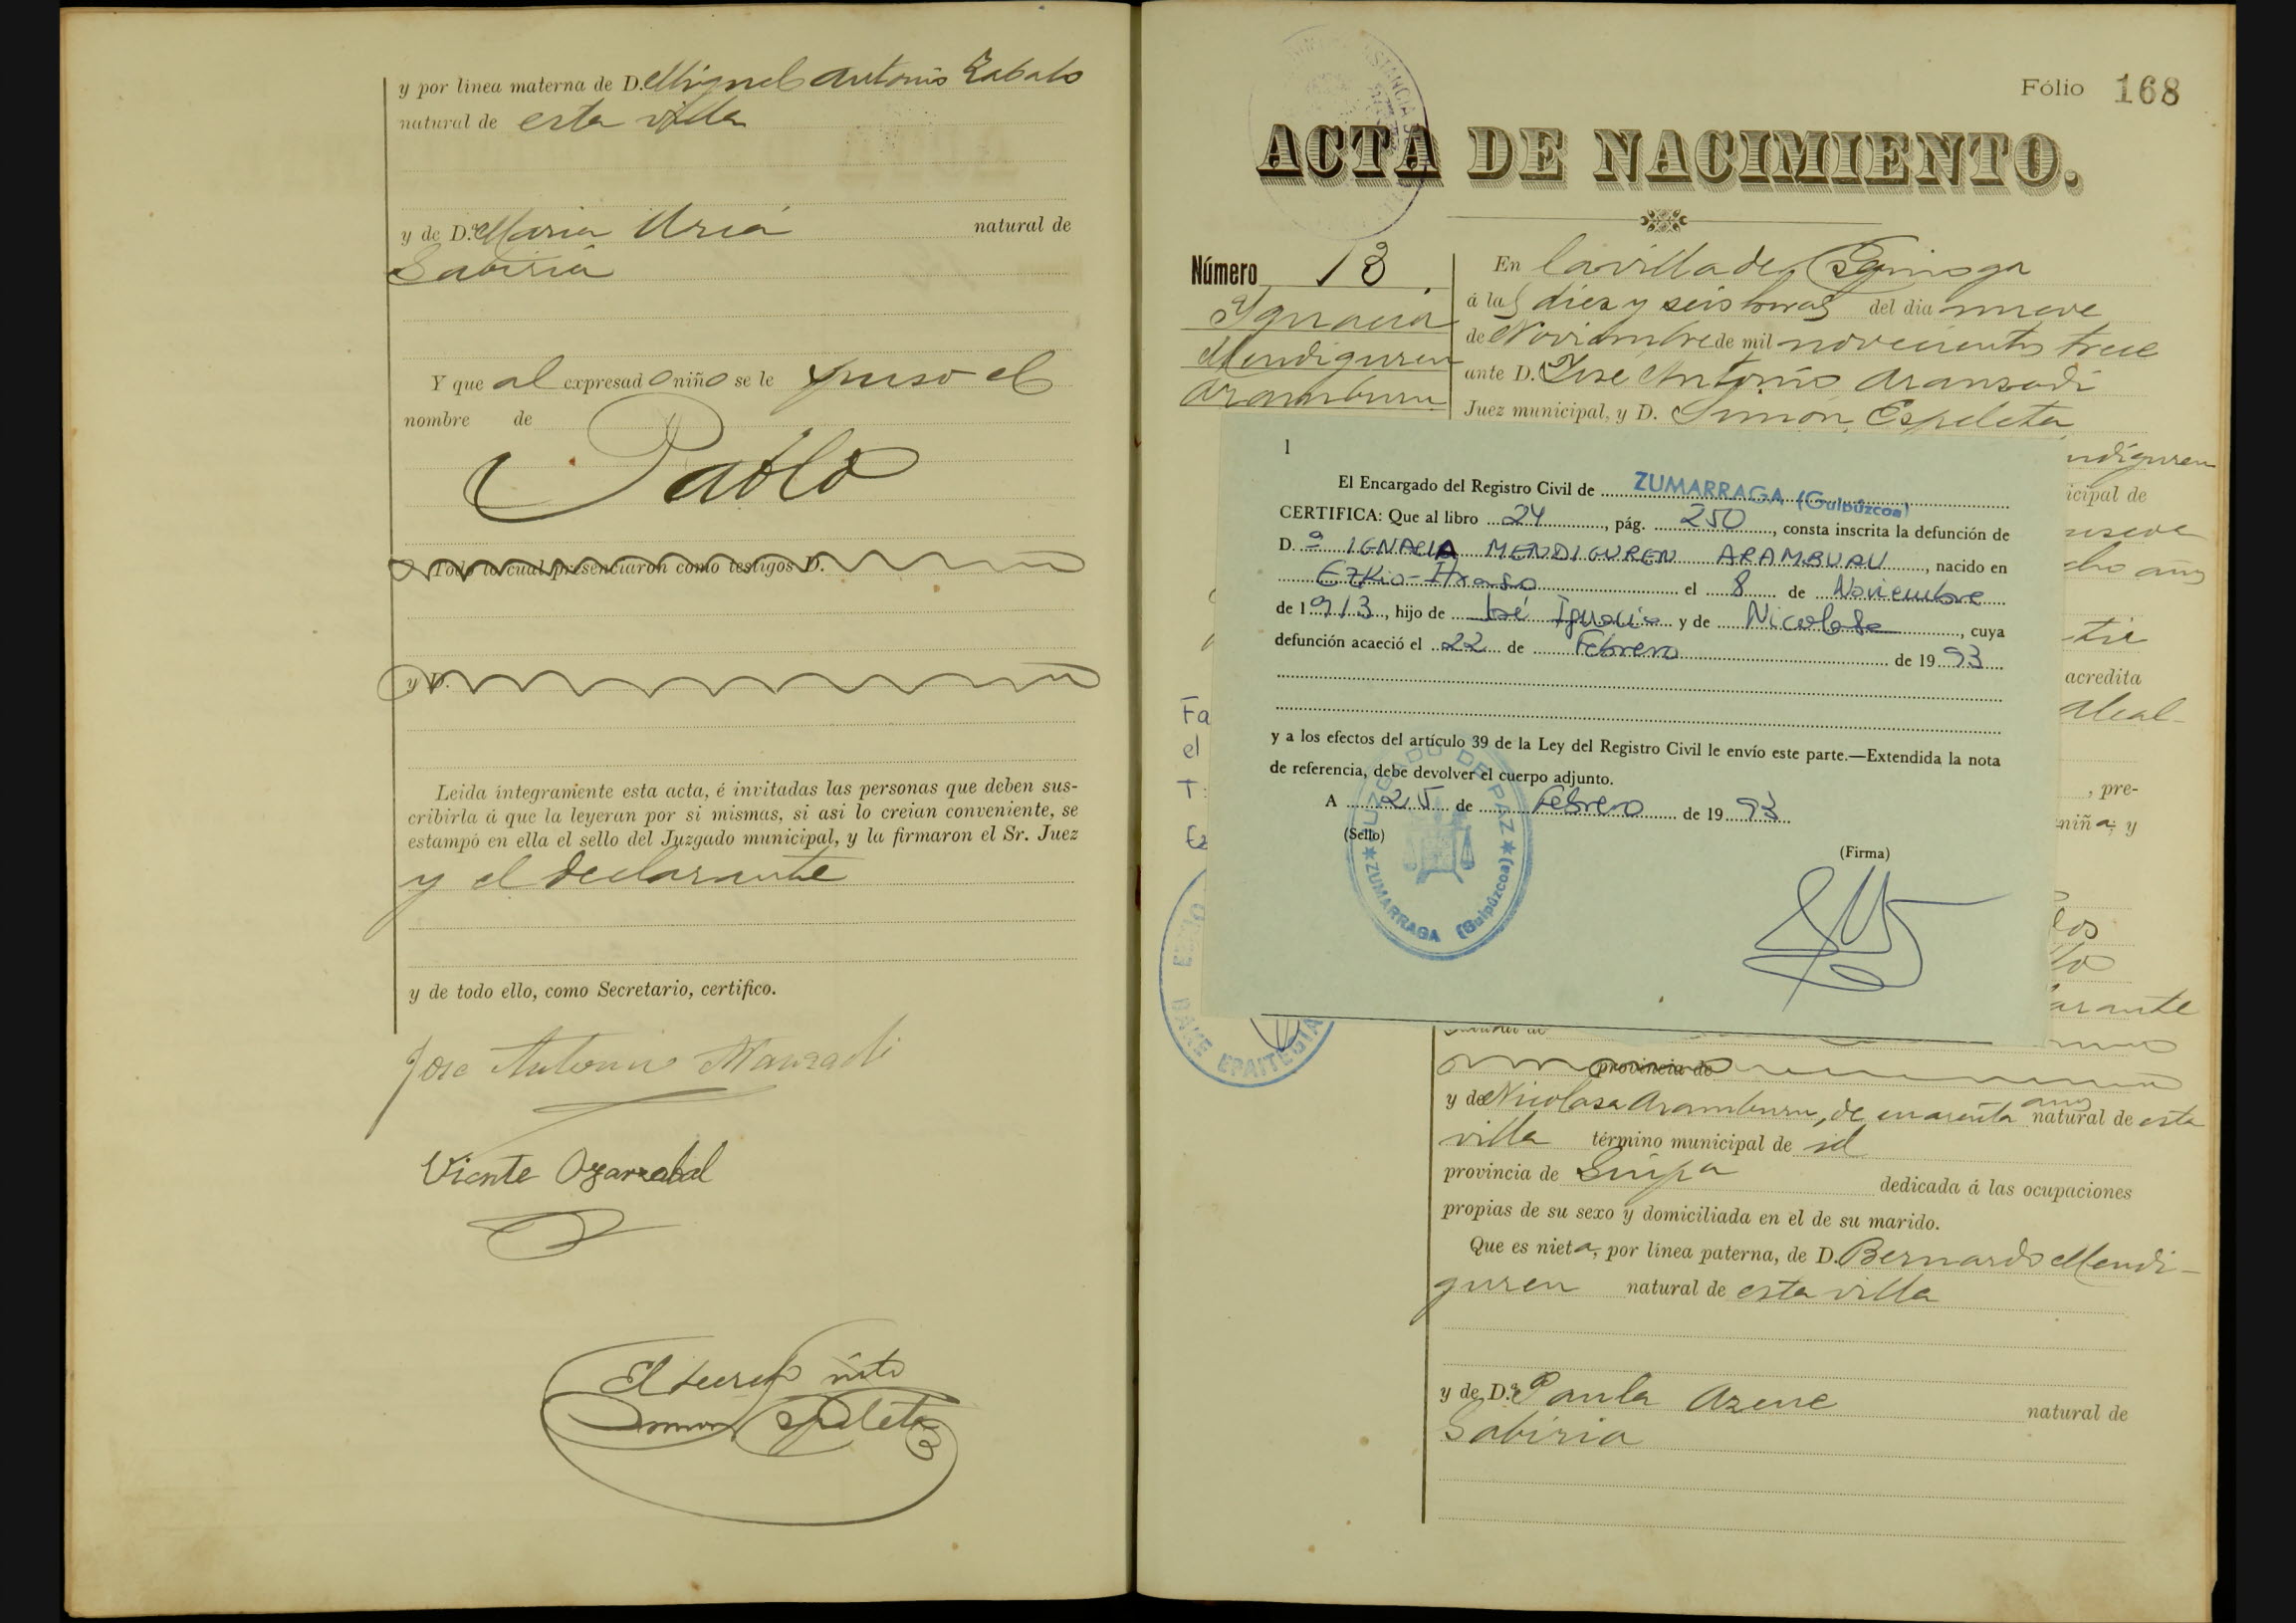 y por línea materna de D. Miguel Antonio Zabalo
natural de esta villa
y de D.ª Maria Uria natural de
Gabiria
Y que al expresado niño se le puso el
nombre de
Pablo
Todo lo cual presenciaron como testigos D.
y D.
Leida íntegramente esta acta, é invitadas las personas que deben sus-
cribirla á que la leyeran por si mismas, si asi lo creian conveniente, se
estampó en ella el sello del Juzgado municipal, y la firmaron el Sr. Juez
y el declarante
y de todo ello, como Secretario, certifico.
Jose Antonio Aranzadi
Vicente Oyarzabal
El secret
Simon Espeleta
Fólio 168
ACTA DE NACIMIENTO.
Número 13
Ygnacia
Mendiguren
Aramburu
En la villa de Ezquioga
á las diez y seis horas del dia nueve
de Noviembre de mil novecientos trece
ante D. Jose Antonio Aranzadi
Juez municipal, y D. Simón Espeleta
ndiguren
icipal de
acredita
Alcal-
, pre-
niña; y
arante
1
El Encargado del Registro Civil de ZUMARRAGA (Guipúzcoa)
CERTIFICA: Que al libro 24, pág. 250, consta inscrita la defunción de
D.ª IGNACIA MENDIGUREN ARAMBURU, nacido en
Ezkio-Itxaso el 8 de Noviembre
de 1913, hijo de José Ignacio y de Nicolasa, cuya
defunción acaeció el 22 de Febrero de 1993
y a los efectos del artículo 39 de la Ley del Registro Civil le envío este parte.—Extendida la nota
de referencia, debe devolver el cuerpo adjunto.
A 25 de Febrero de 1993
(Sello)
(Firma)
JUZGADO DE PAZ
ZUMARRAGA (Guipúzcoa)
Fa
el
T
Ez
BAKE EPAITEGIA
provincia de
y de Nicolasa Aramburu, de cuarenta años natural de esta
villa término municipal de id
provincia de Guipa dedicada á las ocupaciones
propias de su sexo y domiciliada en el de su marido.
Que es nieta, por línea paterna, de D. Bernardo Mendi-
guren natural de esta villa
y de D.ª Paula Azcue natural de
Gabiria